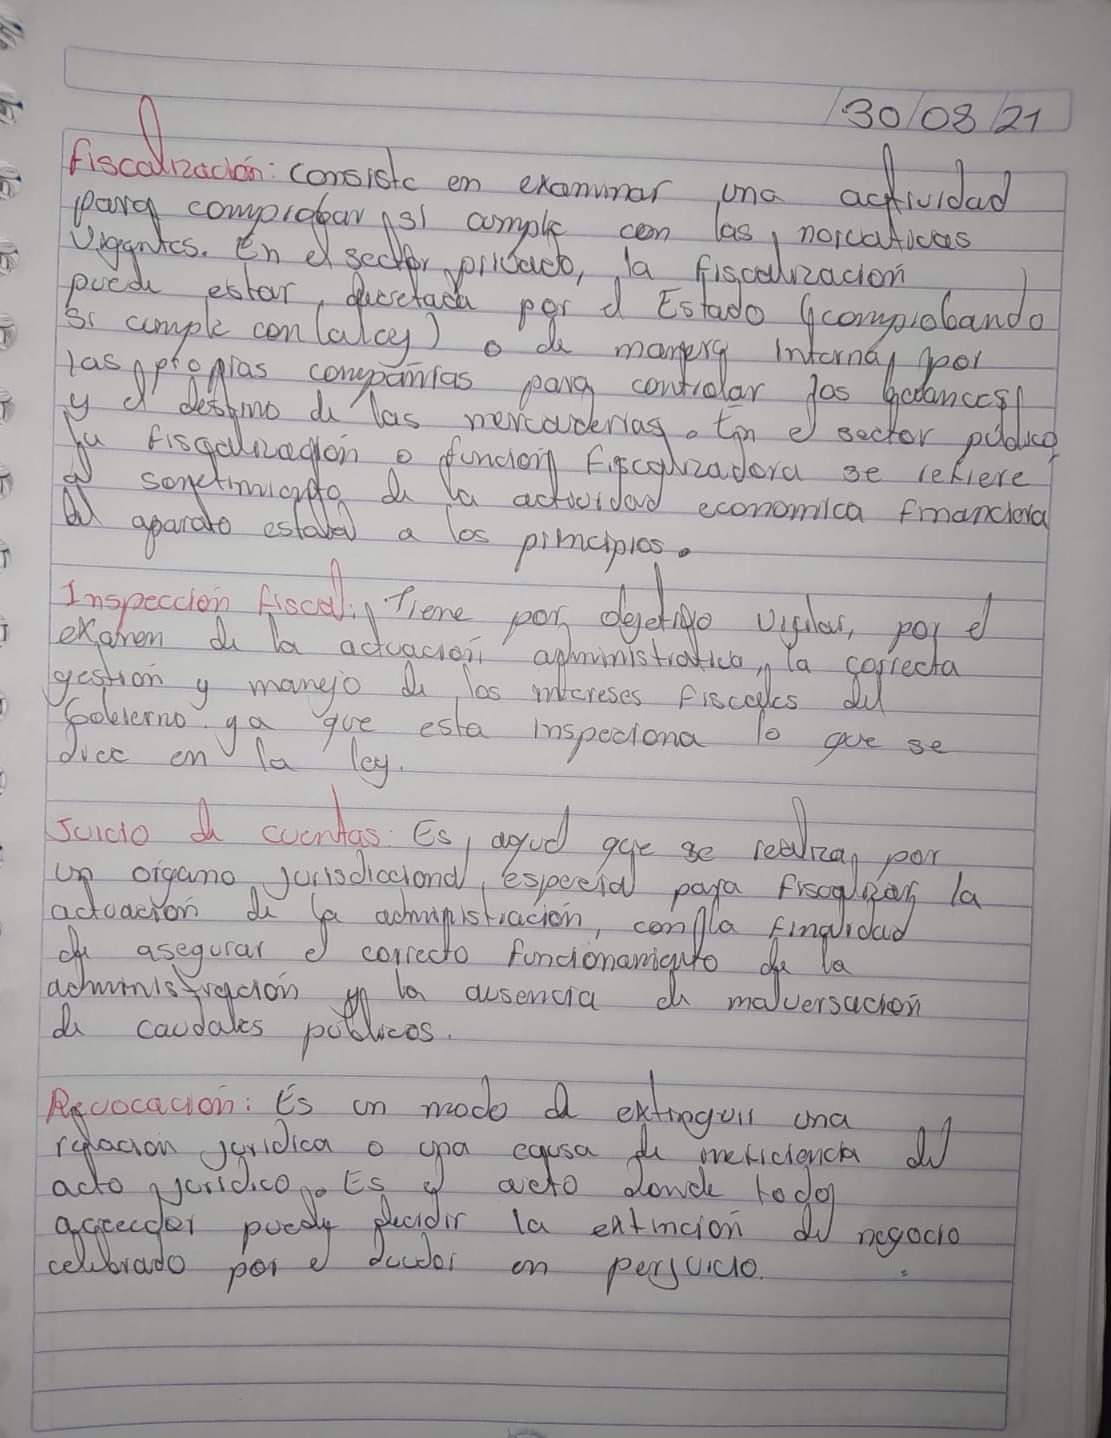 30/08/21
Fiscalización: consiste en examinar una actividad
para comprobar si cumple con las normativas
vigentes. En el sector privado, la fiscalización
puede estar decretada por el Estado (comprobando
si cumple con la ley) o de manera interna, por
las propias compañías para controlar los balances
y el destino de las mercaderías. En el sector público
la fiscalización o función fiscalizadora se refiere
al sometimiento de la actividad economica financiera
del aparato estatal a los principios.
Inspección fiscal: Tiene por objetivo vigilar, por el
examen de la actuación administrativa, la correcta
gestión y manejo de los intereses fiscales del
Gobierno ya que esta inspecciona lo que se
dice en la ley.
Juicio de cuentas: Es aquel que se realiza por
un órgano jurisdiccional especial para fiscalizar la
actuación de la administración, con la finalidad
de asegurar el correcto funcionamiento de la
administración y la ausencia de malversación
de caudales públicos.
Revocación: Es un modo de extinguir una
relación jurídica o una causa de ineficiencia del
acto jurídico. Es el acto donde todo
acreedor puede decidir la extinción del negocio
celebrado por el deudor en perjuicio.